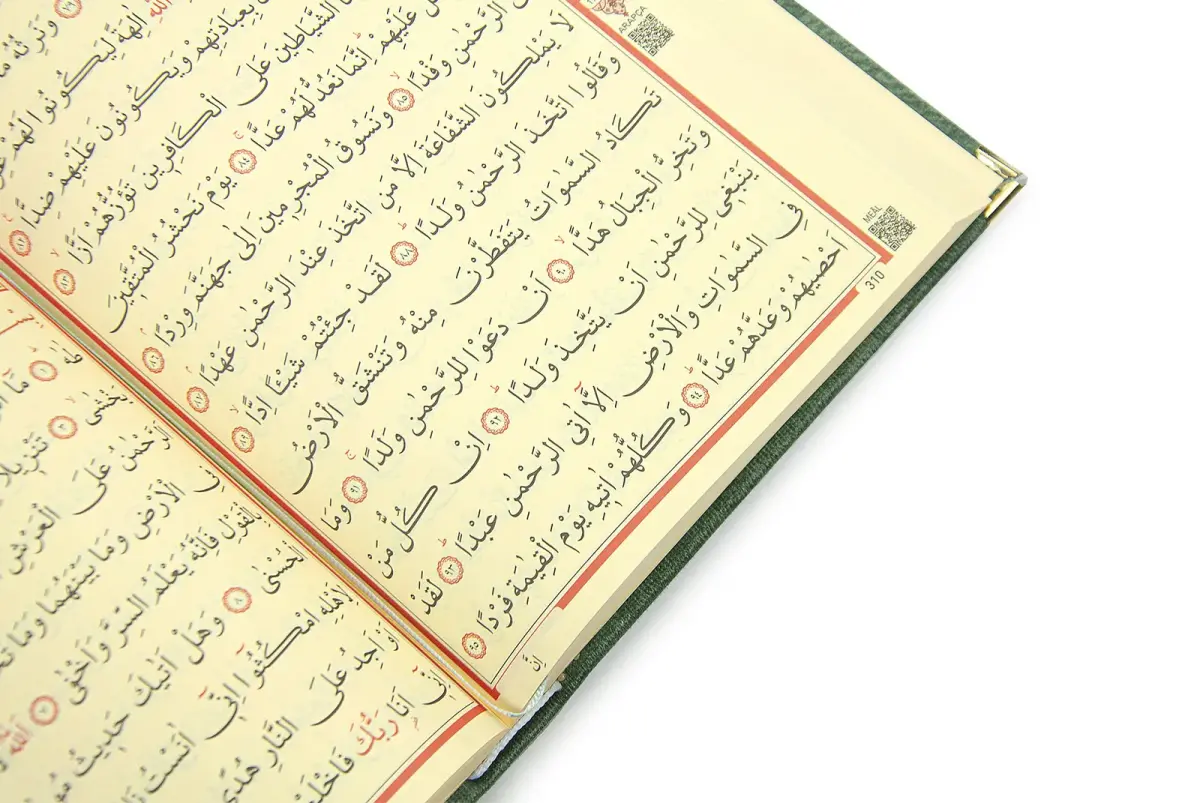 ARAPÇA
وَنَرِثُهُ مَا
اللّٰهِ اٰلِهَةً لِيَكُونُوا لَهُمْ
بِعِبَادَتِهِمْ وَيَكُونُونَ عَلَيْهِمْ ضِدًّا ﴿٨٢﴾
الشَّيَاطِينَ عَلَى الْكَافِرِينَ تَؤُزُّهُمْ اَزًّا ﴿٨٣﴾
عَلَيْهِمْ اِنَّمَا نَعُدُّ لَهُمْ عَدًّا ﴿٨٤﴾ يَوْمَ نَحْشُرُ الْمُتَّقِينَ
الرَّحْمٰنِ وَفْدًا ﴿٨٥﴾ وَنَسُوقُ الْمُجْرِمِينَ اِلٰى جَهَنَّمَ وِرْدًا ﴿٨٦﴾
لَا يَمْلِكُونَ الشَّفَاعَةَ اِلَّا مَنِ اتَّخَذَ عِنْدَ الرَّحْمٰنِ عَهْدًا ﴿٨٧﴾
وَقَالُوا اتَّخَذَ الرَّحْمٰنُ وَلَدًا ﴿٨٨﴾ لَقَدْ جِئْتُمْ شَيْـًٔا اِدًّا ﴿٨٩﴾
تَكَادُ السَّمٰوَاتُ يَتَفَطَّرْنَ مِنْهُ وَتَنْشَقُّ الْاَرْضُ
وَتَخِرُّ الْجِبَالُ هَدًّا ﴿٩٠﴾ اَنْ دَعَوْا لِلرَّحْمٰنِ وَلَدًا ﴿٩١﴾ وَمَا
يَنْبَغِي لِلرَّحْمٰنِ اَنْ يَتَّخِذَ وَلَدًا ﴿٩٢﴾ اِنْ كُلُّ مَنْ
فِي السَّمٰوَاتِ وَالْاَرْضِ اِلَّٓا اٰتِي الرَّحْمٰنِ عَبْدًا ﴿٩٣﴾ لَقَدْ
اَحْصٰيهُمْ وَعَدَّهُمْ عَدًّا ﴿٩٤﴾ وَكُلُّهُمْ اٰتِيهِ يَوْمَ الْقِيٰمَةِ فَرْدًا ﴿٩٥﴾
MEAL
310
اِنَّ
طٰهٰ ﴿١﴾ مَٓا
يَخْشٰى ﴿٣﴾ تَنْزِيلًا
اَلرَّحْمٰنُ عَلَى الْعَرْشِ
فِي الْاَرْضِ وَمَا بَيْنَهُمَا وَمَا
بِالْقَوْلِ فَاِنَّهُ يَعْلَمُ السِّرَّ وَاَخْفٰى ﴿٧﴾ اَللّٰهُ
الْحُسْنٰى ﴿٨﴾ وَهَلْ اَتٰيكَ حَدِيثُ
لِاَهْلِهِ امْكُثُٓوا اِنِّٓي اٰنَسْتُ
اَوْ اَجِدُ عَلَى النَّارِ هُدًى
اِنِّٓي اَنَا۬ رَبُّكَ فَاخْلَعْ